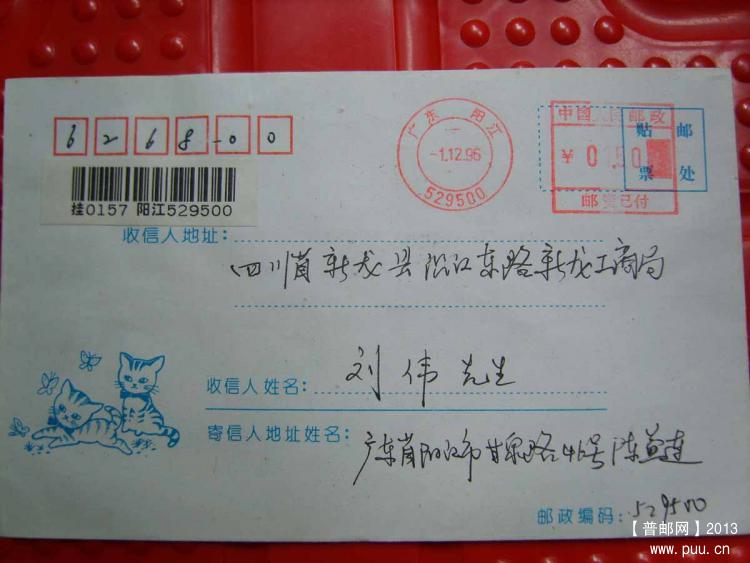 626800
广东 阳江
-1.12.96
529500
中国人民邮政
¥ 0150
邮资已付
贴 邮
票 处
挂0157 阳江529500
收信人地址:
四川省新龙县沿江东路新龙工商局
收信人姓名: 刘伟先生
寄信人地址姓名:
广东省阳江市甘泉路46号陈益莲
邮政编码: 529500
【普邮网】2013
www.puu.cn